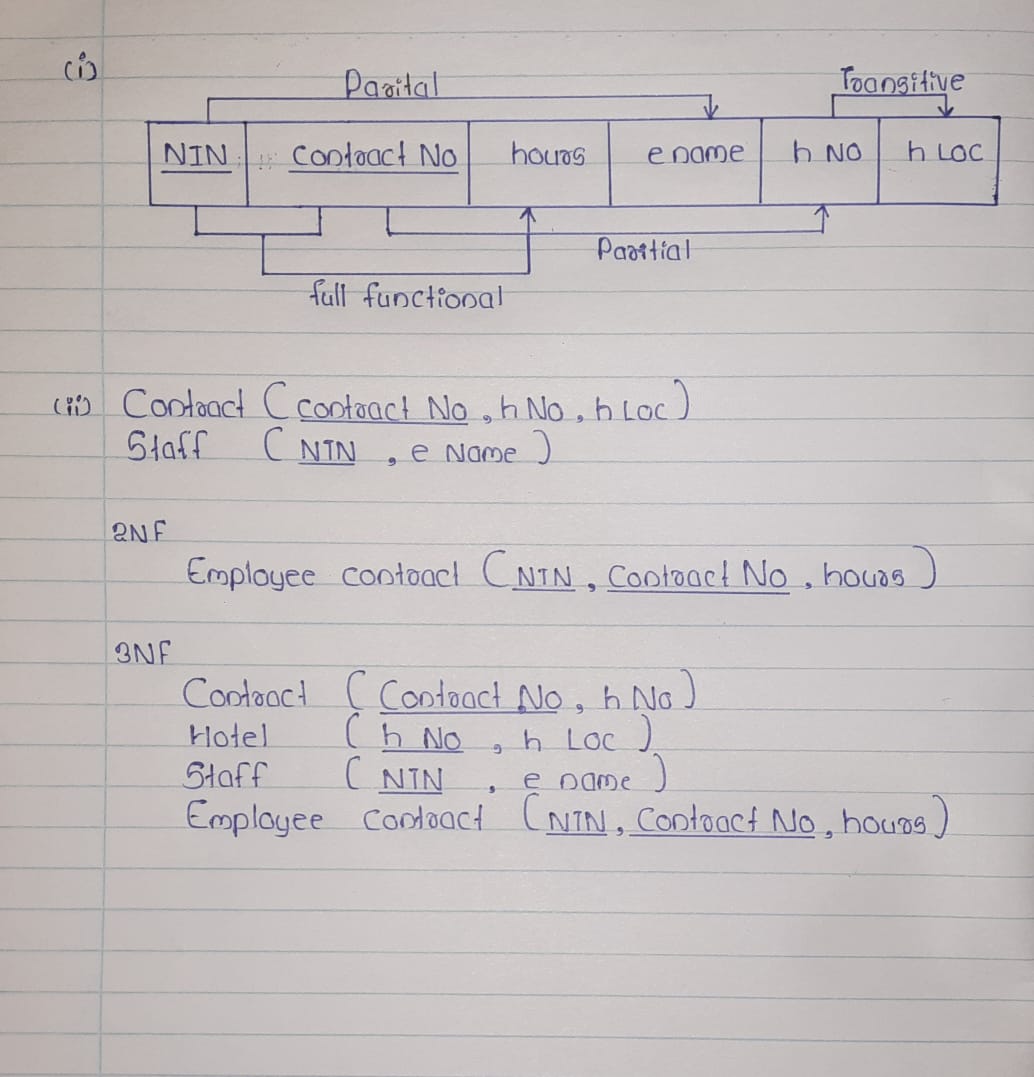 (i)
Parital
Transitive
NIN contract No hours ename h NO h LOC
Partial
full functional
(ii) Contract (contract No, h No, h Loc)
Staff (NIN, e Name)
2NF
Employee contract (NIN, Contract No, hours)
3NF
Contract (Contract No, h No)
Hotel (h No, h Loc)
Staff (NIN, e name)
Employee contract (NIN, Contract No, hours)